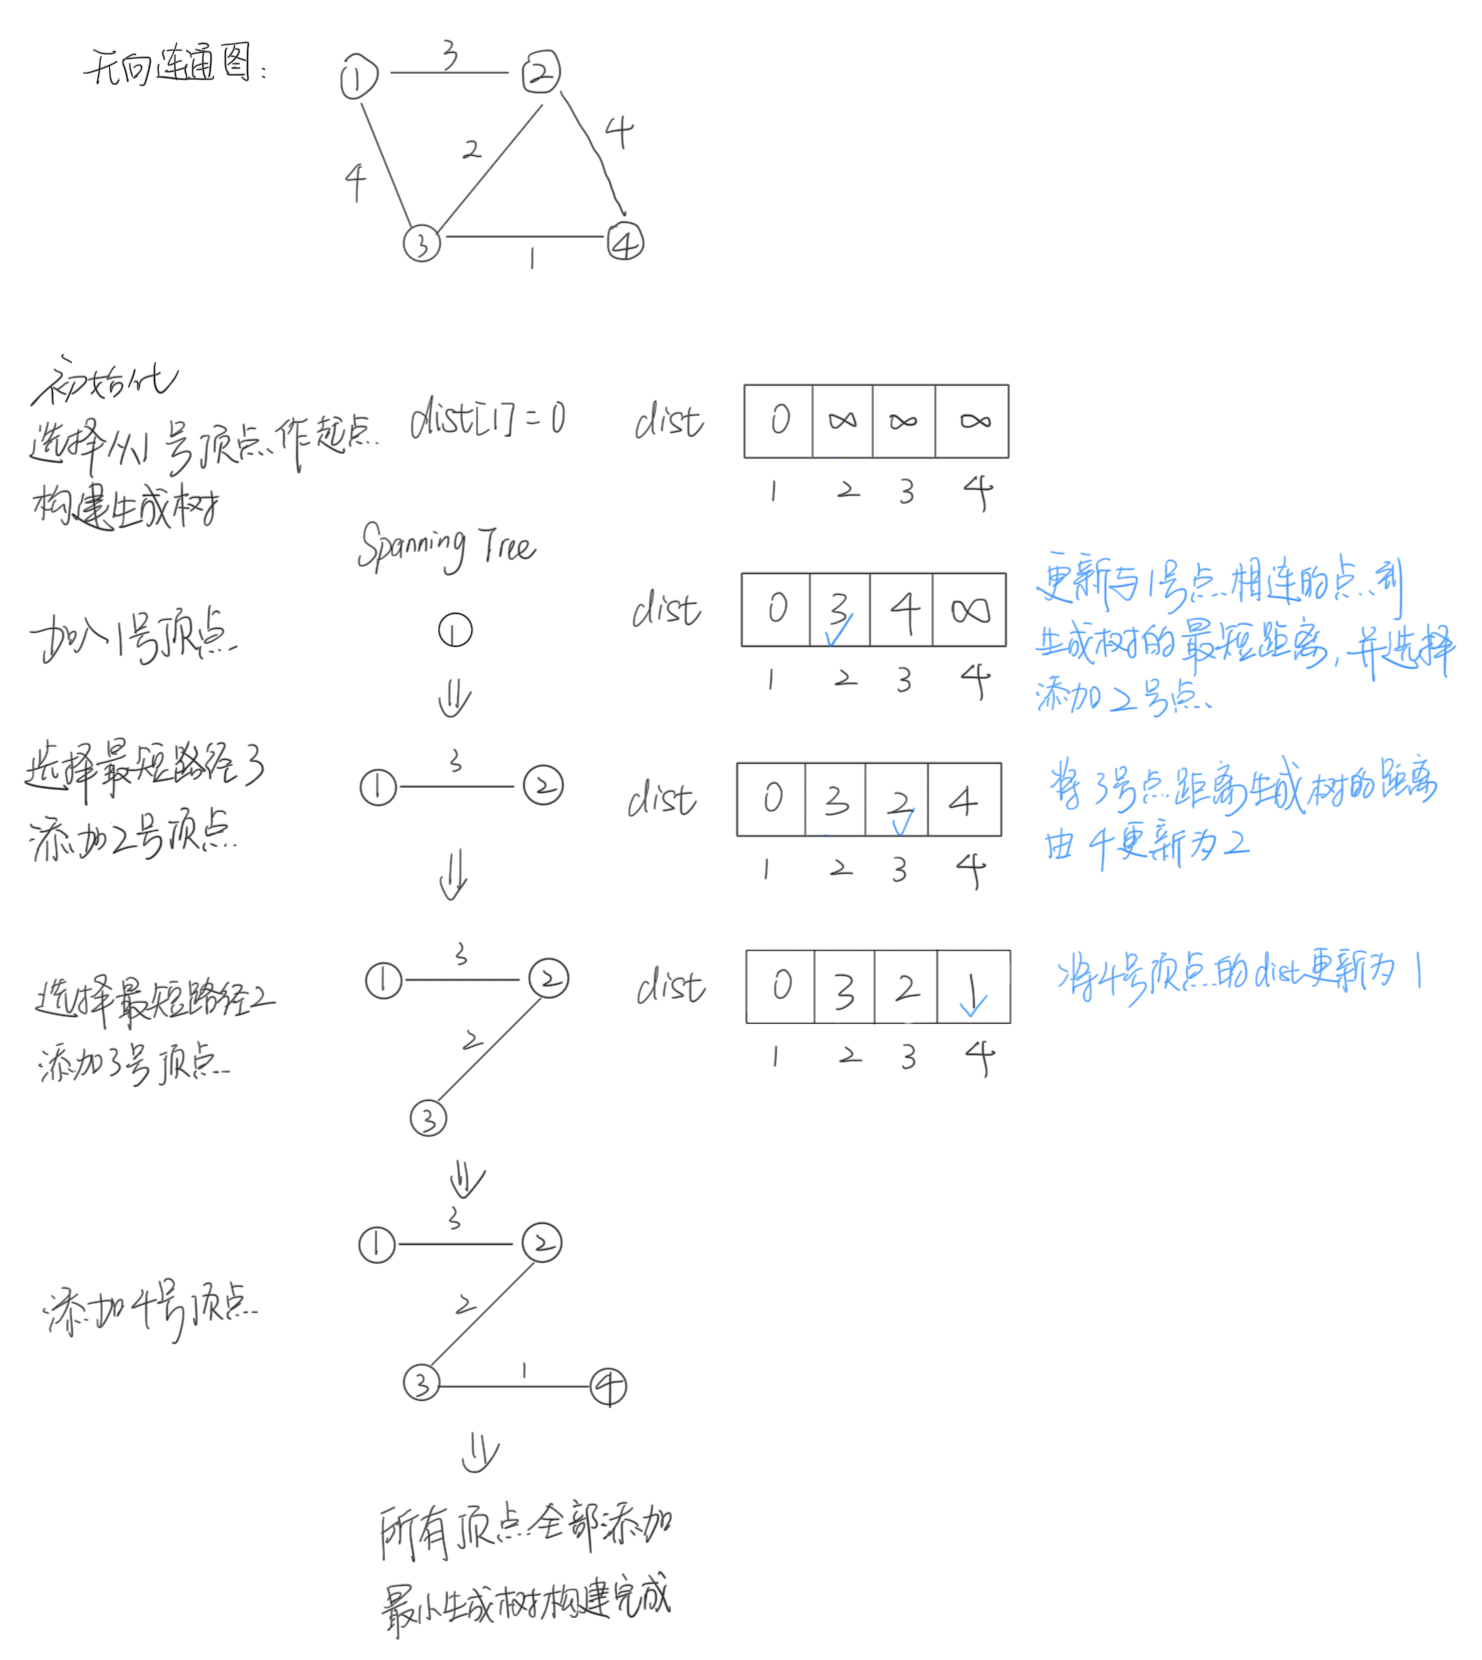 无向连通图：
① 3 ②
4 2 4
③ 1 ④
初始化
选择从1号顶点作起点
构建生成树
dist[1]=0
dist 0 ∞ ∞ ∞
1 2 3 4
Spanning Tree
加入1号顶点
①
dist 0 3 4 ∞
1 2 3 4
更新与1号点相连的点到
生成树的最短距离，并选择
添加2号点
选择最短路径3
添加2号顶点
① 3 ②
dist 0 3 2 4
1 2 3 4
将3号点距离生成树的距离
由4更新为2
选择最短路径2
添加3号顶点
① 3 ②
2
③
dist 0 3 2 1
1 2 3 4
将4号顶点的dist更新为1
添加4号顶点
① 3 ②
2
③ 1 ④
所有顶点全部添加
最小生成树构建完成